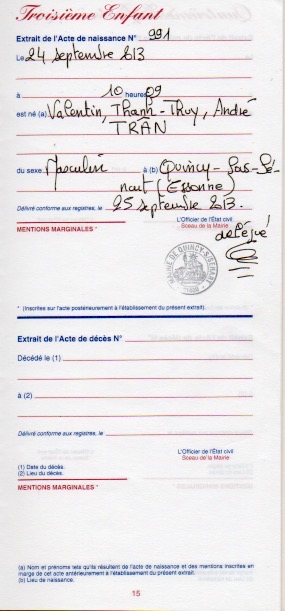 Troisième Enfant
Extrait de l'Acte de naissance N° 991
Le 24 septembre 2013
à 10 heures 09
est né (a) Valentin, Thanh-Thuy, André
TRÂN
du sexe Masculin à (b) Quincy-Sous-Sé-
nart (Essonne)
Délivré conforme aux registres, le 25 septembre 2013.
L'Officier de l'État civil
Sceau de la Mairie
délégué
MENTIONS MARGINALES *
MAIRIE DE QUINCY-S/SÉNART
* (Inscrites sur l'acte postérieurement à l'établissement du présent extrait).
Extrait de l'Acte de décès N°
Décédé le (1)
à (2)
Délivré conforme aux registres, le
L'Officier de l'État civil
Sceau de la Mairie
(1) Date du décès.
(2) Lieu du décès.
MENTIONS MARGINALES *
(a) Nom et prénoms tels qu'ils résultent de l'acte de naissance et des mentions inscrites en
marge de cet acte antérieurement à l'établissement du présent extrait.
(b) Lieu de naissance.
15